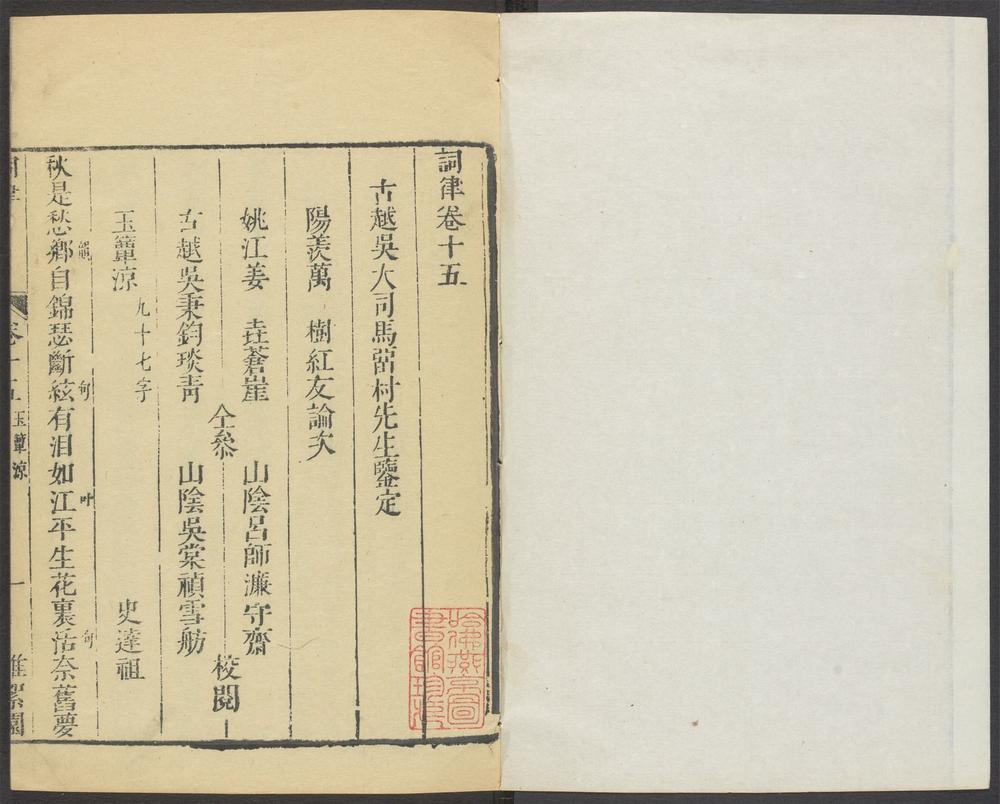 詞律卷十五
古越吳大司馬留村先生鑒定
陽羨萬　樹紅友論次
姚江姜　垚蒼崖　山陰呂師濂守齋
仝叅　校閱
古越吳秉鈞琰青　山陰吳棠禎雪舫
玉簟涼　九十七字　史達祖
秋是愁鄉韻自錦瑟斷絃句有淚如江叶平生花裏活句奈舊夢
詞律　卷十五　玉簟涼　一　堆絮園
哈佛燕京圖書館珍藏